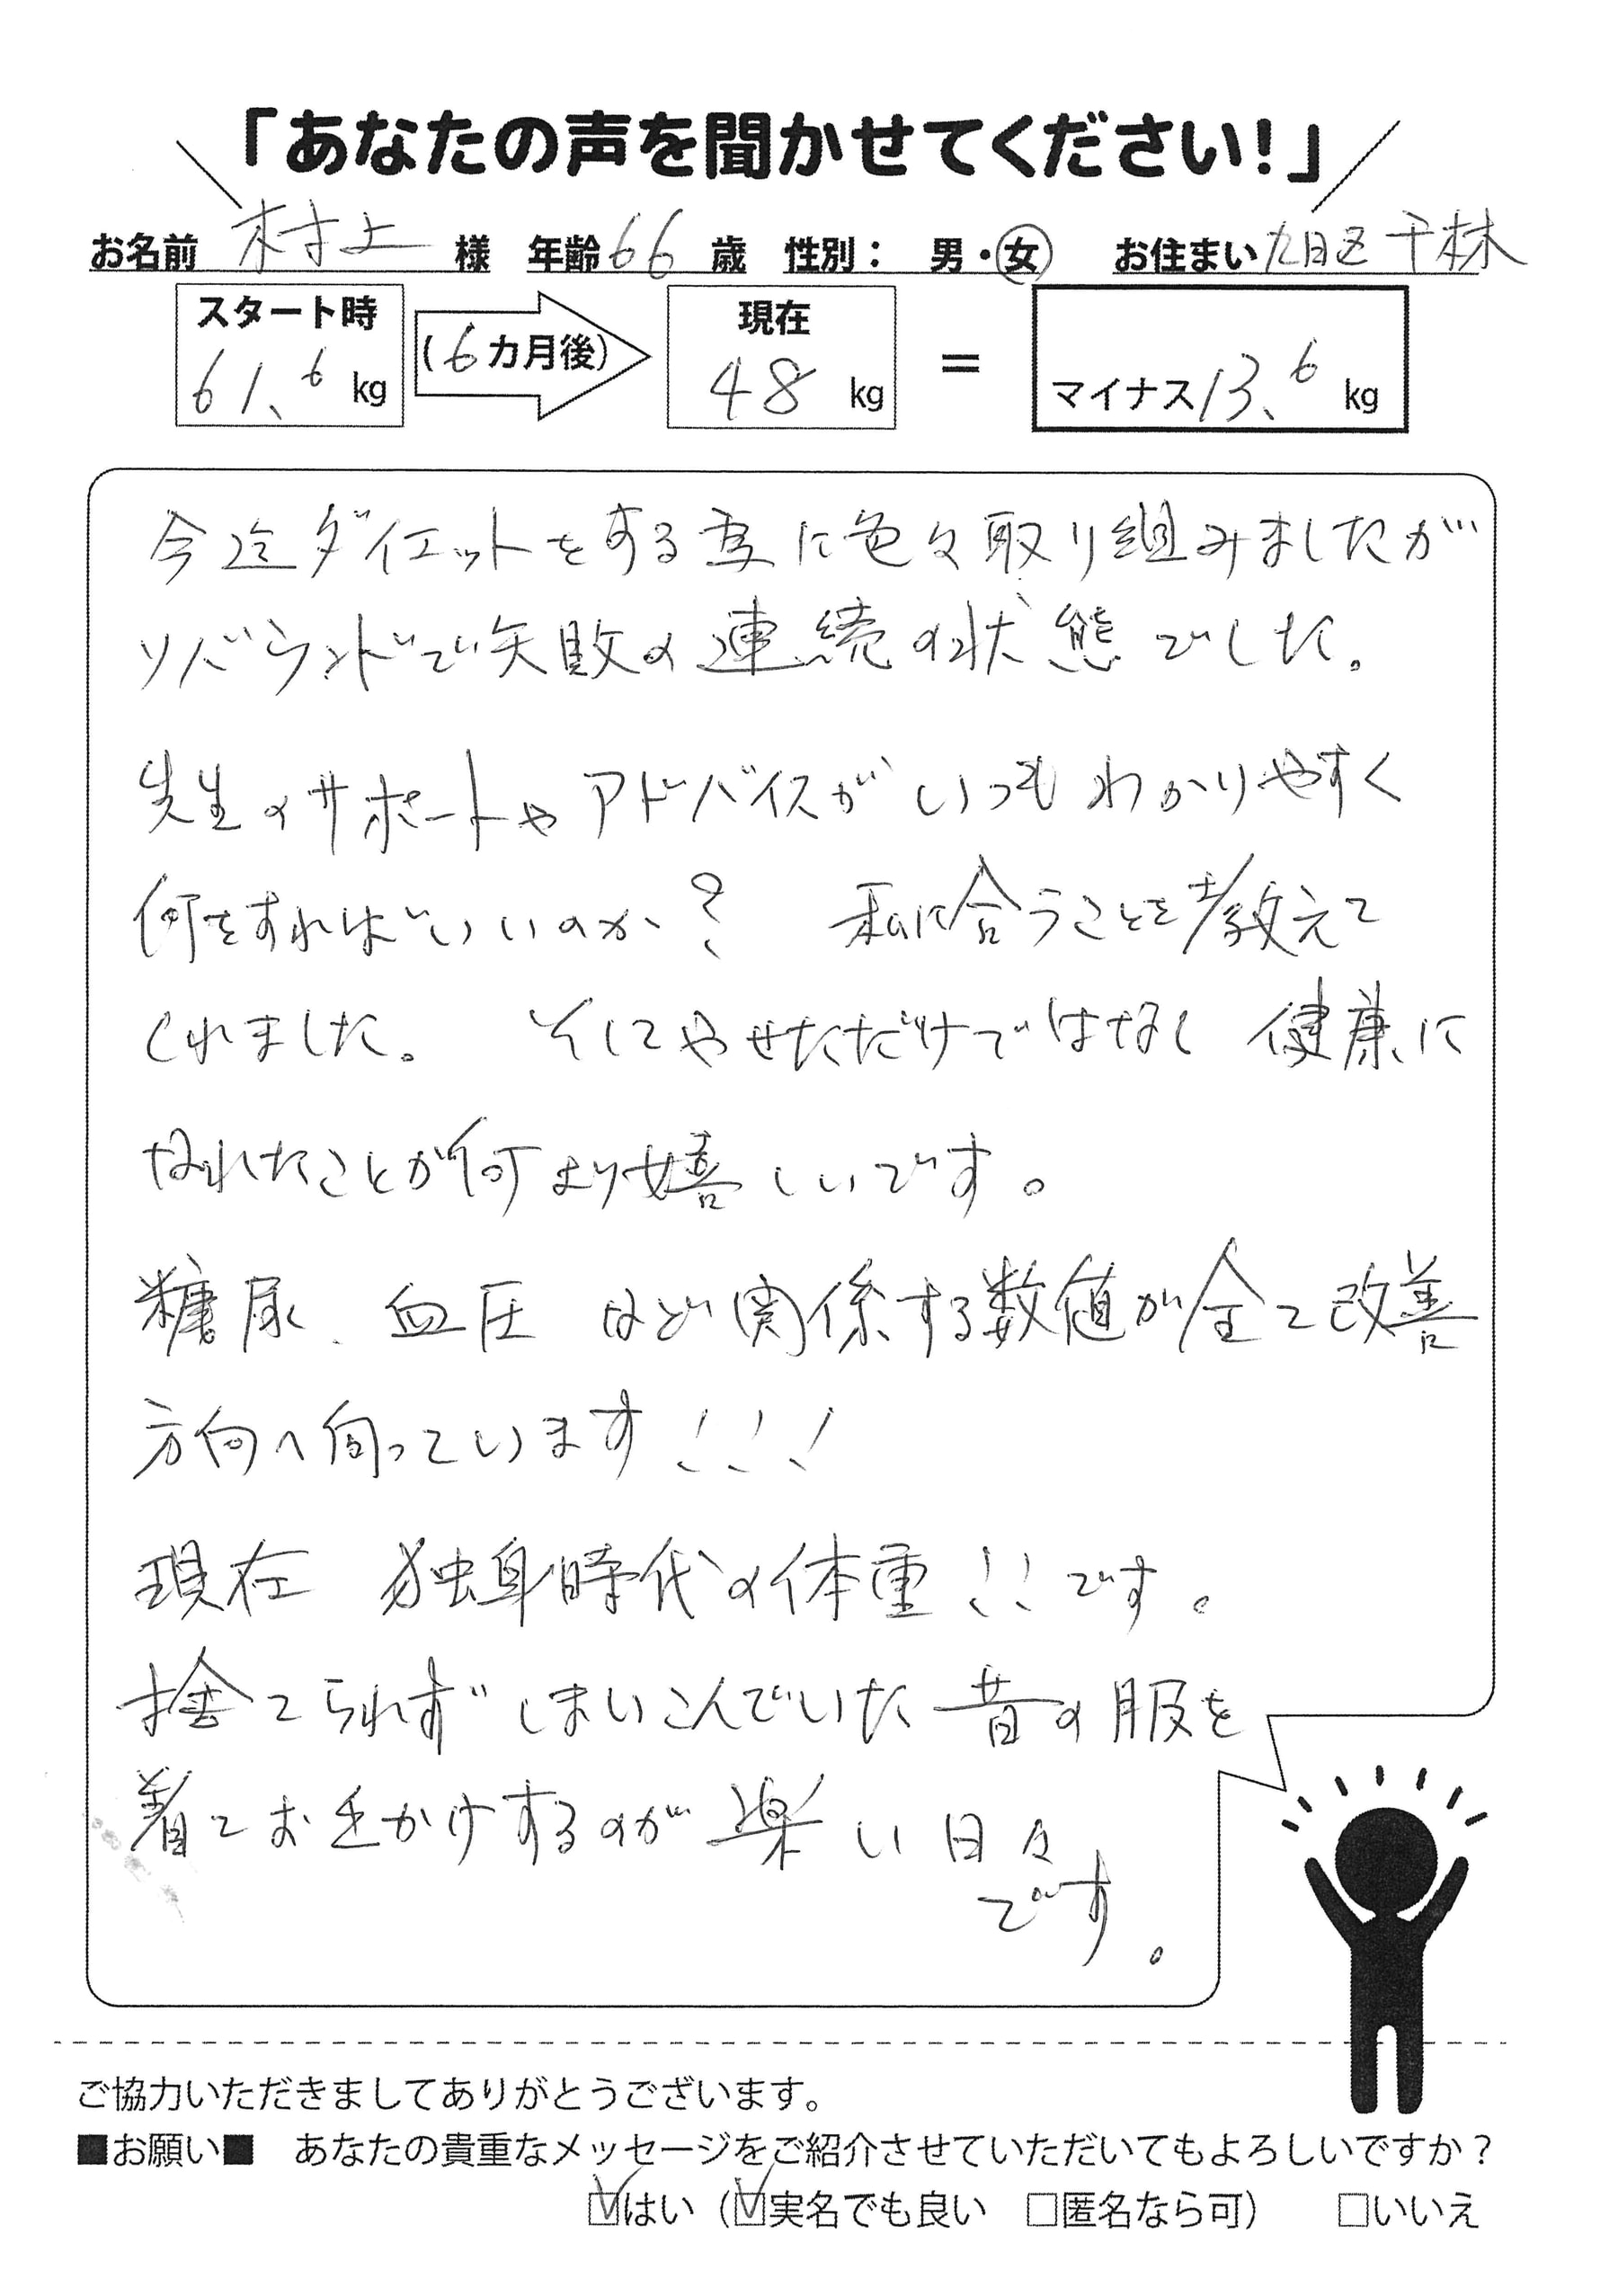 「あなたの声を聞かせてください！」
お名前 村上 様 年齢 66 歳 性別： 男・女 お住まい 旭区 千林
スタート時 (6カ月後) 現在
61.6 kg 48 kg = マイナス13.6 kg
今迄ダイエットをする度に色々取り組みましたが
リバウンドで失敗の連続の状態でした。
先生のサポートやアドバイスがいつもわかりやすく
何をすればいいのか？ 私に合うことを教えて
くれました。 そしてやせただけではなく 健康に
なれたことが何より嬉しいです。
糖尿、血圧 など関係する数値が全て改善
方向へ向っています！！！
現在 独身時代の体重！！です。
捨てられず しまいこんでいた昔の服を
着てお出かけするのが 楽い 日々
です。
ご協力いただきましてありがとうございます。
■お願い■ あなたの貴重なメッセージをご紹介させていただいてもよろしいですか？
☑はい（☑実名でも良い □匿名なら可） □いいえ